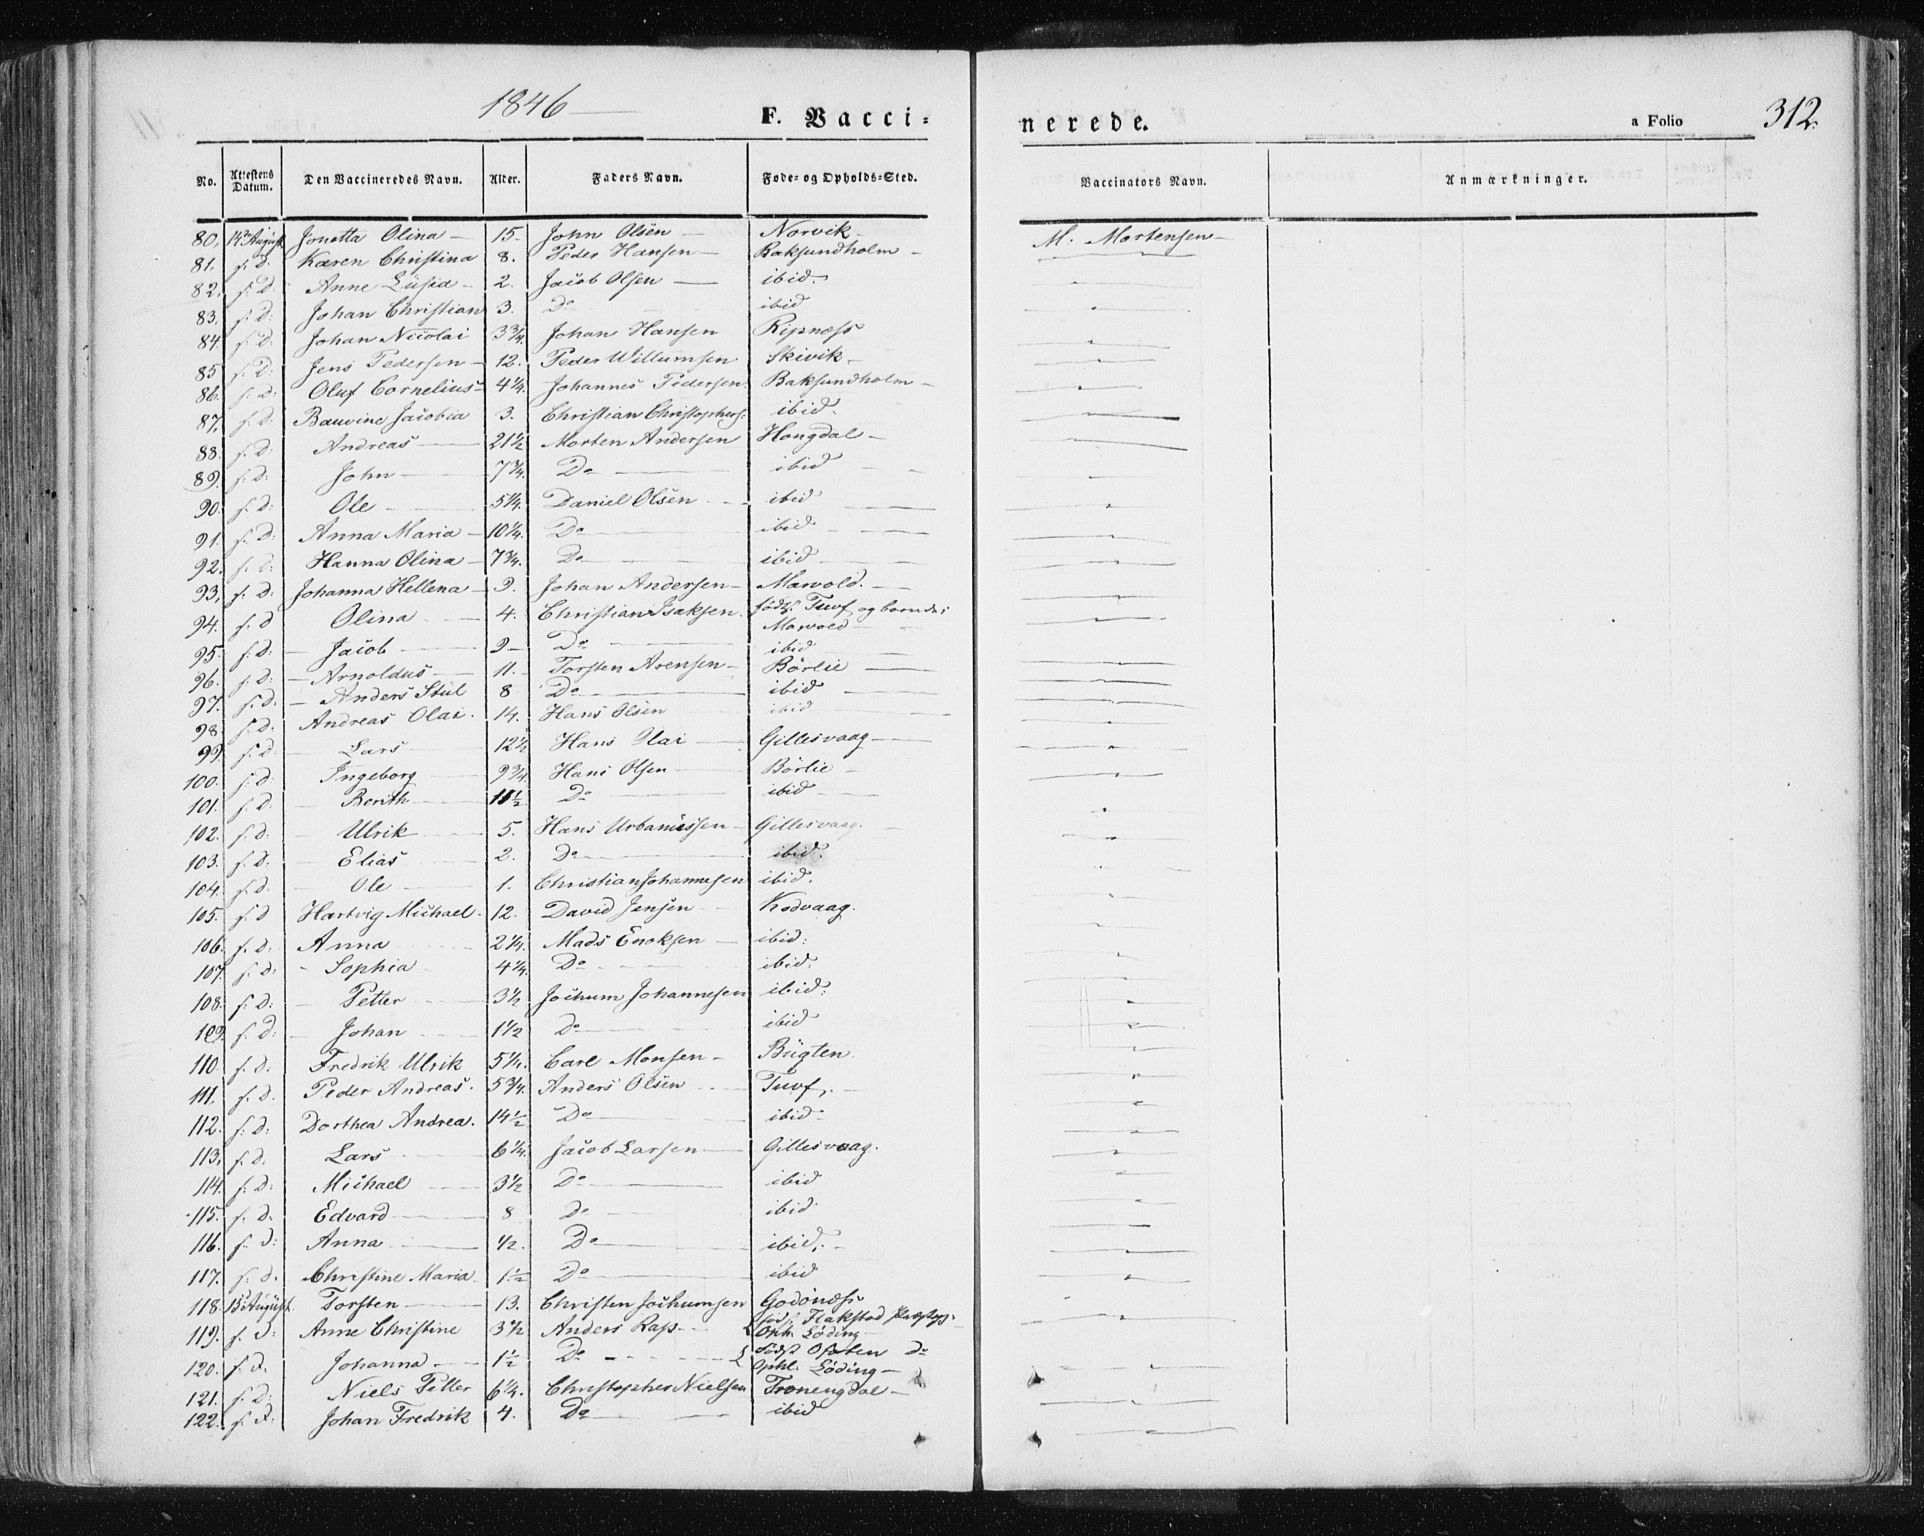 1846
F. Vacci-
nerede.
a Folio
312.
No. Attestens Datum. Den Vaccineredes Navn. Alder. Faders Navn. Føde- og Opholds-Sted. Vaccinators Navn. Anmærkninger.
80. 14de August Jonetta Olina 15. John Olsen Norvik M. Mortensen
81. s. D. Karen Christina 8. Peder Hansen Baksundholm
82. s. D. Anne Lusia 2. Jacob Olsen ibid.
83. s. D. Johan Christian 3. Do ibid
84. s. D. Johan Nicolai 3¾. Johan Hansen Ripnæss
85 s. D. Jens Pedersen 12. Peder Willumsen Skivik
86. s. D. Oluf Cornelius 4¼. Johannes Pedersen Baksundholm
87. s. D. Bauvine Jacobia 3. Christian Christophers: ibid.
88. s. D. Andreas 21½ Morten Andersen Hongdal
89. s. D. John 7¾. Do ibid
90. s. D. Ole 5¼. Daniel Olsen ibid
91. s. D. Anna Maria 10¼. Do ibid
92. s. D. Hanna Olina 7¾. Do ibid
93. s. D. Johanna Hellena 9. Johan Andersen Marvold.
94. s. D Olina 4. Christian Isaksen. føds. Tuvf og boende:
Marvold
95. s. D. Jacob 9 Do ibid
96. s. D. Arnoldus 11. Torsten Arensen Børlie
97. s. D. Anders Stul 8 Do ibid
98 s. D. Andreas Olai. 14. Hans Olsen ibid
99. s. D. Lars 12½ Hans Olai Gillesvaag
100. s. D Ingeborg 9¾. Hans Olsen Børlie
101. s. D. Berith 11½ Do ibid
102. s. D. Ulrik 5. Hans Urbanussen Gillesvaag.
103. s. D. Elias 2. Do ibid.
104. s. D. Ole 1. Christian Johannesen ibid.
105. s. D Hartvig Michael 12. David Jensen Kodvaag.
106. s. D. Anna 2¼. Mads Enoksen ibid:
107. s. D. Sophia 4¼. Do ibid.
108. s. D. Petter 3½ Jochum Johannesen ibid:
109. s. D. Johan 1½ Do ibid
110. s. D. Fredrik Ulrik 5¼. Carl Monsen Bügten
111. s. D. Peder Andreas. 5¾. Anders Olsen Tuvf.
112. s. D. Dorthea Andrea. 14½ Do ibid
113. s. D. Lars 6¼. Jacob Larsen Gillesvaag.
114. s. D. Michael 3½ Do ibid
115. s. D. Edvard 8 Do ibid
116. s. D. Anna ½. Do ibid.
117. s. D. Christine Maria 1½ Do ibid
118. 15de August. Torsten 13. Christen Jochumsen Godönæss
119. s. D. Anne Christine 3½ Anders Rap føds. Flakstad Præstegj:
Oph. Løding
120. s. D. Johanna 1½ Do Föds Ofoten do
Ophl. Løding
121. s. D. Niels Petter 6¼. Christopher Nielsen Tronengdal
122. s. D. Johan Fredrik 4. Do ibid